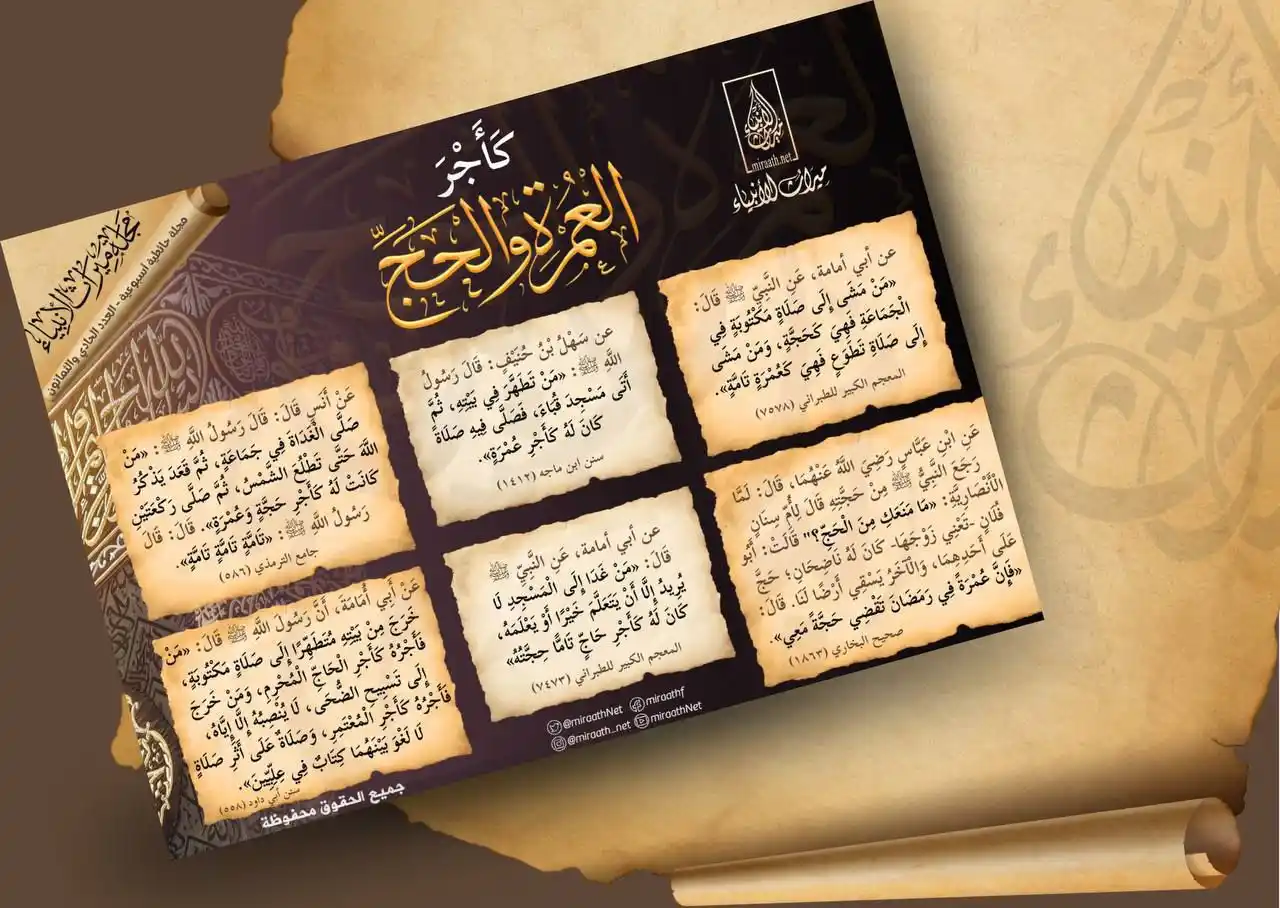 كَأَجْرَ
العُمْرَةِ والحَجِّ
ميراث الأنبياء
miraath.net
ميراث الأنبياء
مجلة ميراث الأنبياء
مجلة حائطية اسبوعية -العدد الحادي والثمانون
عن أبي أمامة، عَنِ النَّبِيِّ ﷺ قَالَ:
«مَنْ مَشَى إِلَى صَلَاةٍ مَكْتُوبَةٍ فِي
الْجَمَاعَةِ فَهِيَ كَحَجَّةٍ، وَمَنْ مَشَى
إِلَى صَلَاةِ تَطَوُّعٍ فَهِيَ كَعُمْرَةٍ تَامَّةٍ».
المعجم الكبير للطبراني (٧٥٧٨)
عن سَهْلُ بْنُ حُنَيْفٍ: قَالَ رَسُولُ
اللَّهِ ﷺ: «مَنْ تَطَهَّرَ فِي بَيْتِهِ، ثُمَّ
أَتَى مَسْجِدَ قُبَاءَ، فَصَلَّى فِيهِ صَلَاةً
كَانَ لَهُ كَأَجْرِ عُمْرَةٍ».
سنن ابن ماجه (١٤١٢)
عَنْ أَنَسٍ قَالَ: قَالَ رَسُولُ اللَّهِ ﷺ: «مَنْ
صَلَّى الْغَدَاةَ فِي جَمَاعَةٍ، ثُمَّ قَعَدَ يَذْكُرُ
اللَّهَ حَتَّى تَطْلُعَ الشَّمْسُ، ثُمَّ صَلَّى رَكْعَتَيْنِ
كَانَتْ لَهُ كَأَجْرِ حَجَّةٍ وَعُمْرَةٍ». قَالَ: قَالَ
رَسُولُ اللَّهِ ﷺ: «تَامَّةٍ تَامَّةٍ تَامَّةٍ».
جامع الترمذي (٥٨٦)
عَنِ ابْنِ عَبَّاسٍ رَضِيَ اللَّهُ عَنْهُمَا، قَالَ: لَمَّا
رَجَعَ النَّبِيُّ ﷺ مِنْ حَجَّتِهِ قَالَ لِأُمِّ سِنَانٍ
الْأَنْصَارِيَّةِ: «مَا مَنَعَكِ مِنَ الْحَجِّ؟" قَالَتْ: أَبُو
فُلَانٍ -تَعْنِي زَوْجَهَا- كَانَ لَهُ نَاضِحَانِ؛ حَجَّ
عَلَى أَحَدِهِمَا، وَالْآخَرُ يَسْقِي أَرْضًا لَنَا. قَالَ:
«فَإِنَّ عُمْرَةً فِي رَمَضَانَ تَقْضِي حَجَّةً مَعِي».
صحيح البخاري (١٨٦٣)
عن أبي أمامة، عَنِ النَّبِيِّ ﷺ
قَالَ: «مَنْ غَدَا إِلَى الْمَسْجِدِ لَا
يُرِيدُ إِلَّا أَنْ يَتَعَلَّمَ خَيْرًا أَوْ يَعْلَمَهُ،
كَانَ لَهُ كَأَجْرِ حَاجٍّ تَامًّا حِجَّتُهُ»
المعجم الكبير للطبراني (٧٤٧٣)
عَنْ أَبِي أُمَامَةَ، أَنَّ رَسُولَ اللَّهِ ﷺ قَالَ: «مَنْ
خَرَجَ مِنْ بَيْتِهِ مُتَطَهِّرًا إِلَى صَلَاةٍ مَكْتُوبَةٍ،
فَأَجْرُهُ كَأَجْرِ الْحَاجِّ الْمُحْرِمِ، وَمَنْ خَرَجَ
إِلَى تَسْبِيحِ الضُّحَى، لَا يُنْصِبُهُ إِلَّا إِيَّاهُ،
فَأَجْرُهُ كَأَجْرِ الْمُعْتَمِرِ، وَصَلَاةٌ عَلَى أَثَرِ صَلَاةٍ
لَا لَغْوَ بَيْنَهُمَا كِتَابٌ فِي عِلِّيِّينَ».
سنن أبي داود (٥٥٨)
@miraathNet miraathf
@miraath_net miraathNet
جميع الحقوق محفوظة